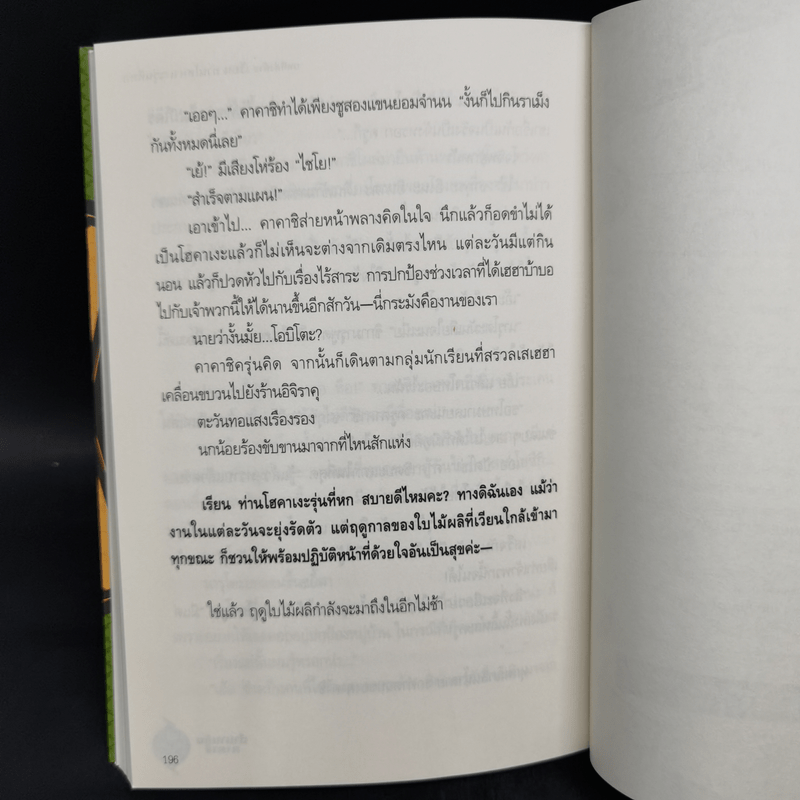 "เออๆ..." คาคาชิทำได้เพียงชูสองแขนยอมจำนน "งั้นก็ไปกินราเม็ง
กันทั้งหมดนี่เลย"
"เย้!" มีเสียงโห่ร้อง "ไชโย!"
"สำเร็จตามแผน!"
เอาเข้าไป... คาคาชิส่ายหน้าพลางคิดในใจ นึกแล้วก็อดขำไม่ได้
เป็นโฮคาเงะแล้วก็ไม่เห็นจะต่างจากเดิมตรงไหน แต่ละวันมีแต่กิน
นอน แล้วก็ปวดหัวไปกับเรื่องไร้สาระ การปกป้องช่วงเวลาที่ได้เฮฮาบ้าบอ
ไปกับเจ้าพวกนี้ให้ได้นานขึ้นอีกสักวัน—นี่กระมังคืองานของเรา
นายว่างั้นมั้ย...โอบิโตะ?
คาคาชิครุ่นคิด จากนั้นก็เดินตามกลุ่มนักเรียนที่สรวลเสเฮฮา
เคลื่อนขบวนไปยังร้านอิจิราคุ
ตะวันทอแสงเรืองรอง
นกน้อยร้องขับขานมาจากที่ไหนสักแห่ง
เรียน ท่านโฮคาเงะรุ่นที่หก สบายดีไหมคะ? ทางดิฉันเอง แม้ว่า
งานในแต่ละวันจะยุ่งรัดตัว แต่ฤดูกาลของใบไม้ผลิที่เวียนใกล้เข้ามา
ทุกขณะ ก็ชวนให้พร้อมปฏิบัติหน้าที่ด้วยใจอันเป็นสุขค่ะ—
ใช่แล้ว ฤดูใบไม้ผลิกำลังจะมาถึงในอีกไม่ช้า
196